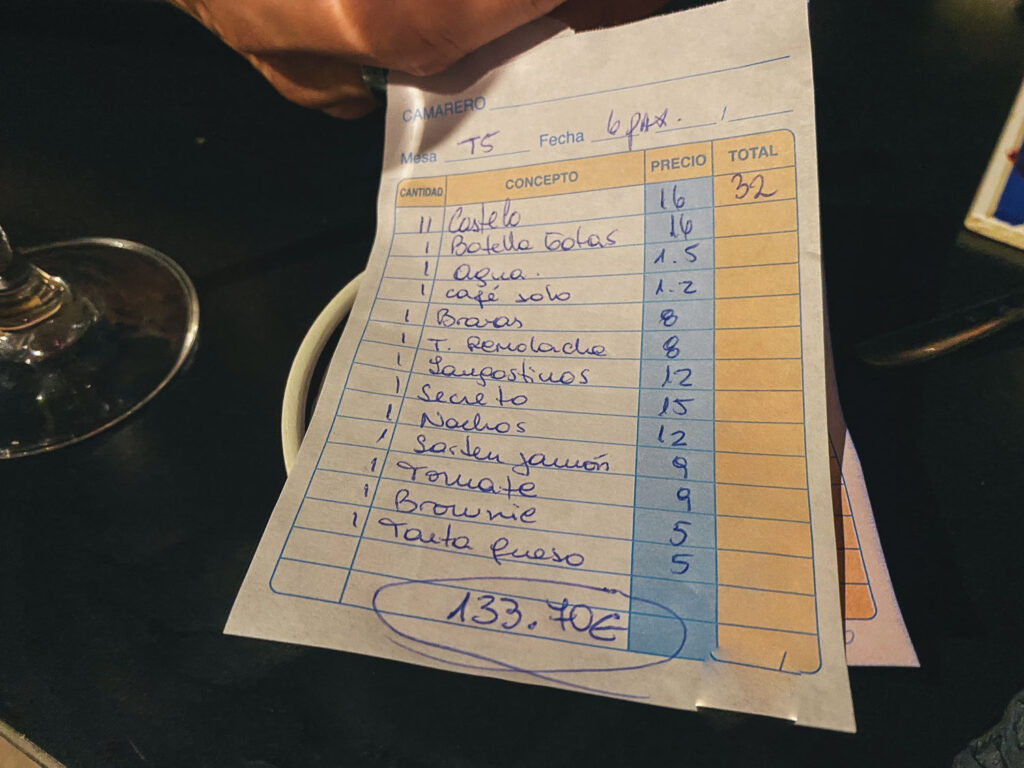 CAMARERO
Mesa T5 Fecha 6 pax. /
CANTIDAD CONCEPTO PRECIO TOTAL
11 Castelo 16 32
1 Botella Gotas 16
1 agua. 1.5
1 café solo 1.2
1 Bravas 8
1 T. Remolacha 8
1 Langostinos 12
1 Secreto 15
1 Nachos 12
1 Sarten jamón 9
1 Tomate 9
1 Brownie 5
1 Tarta queso 5
133.70€